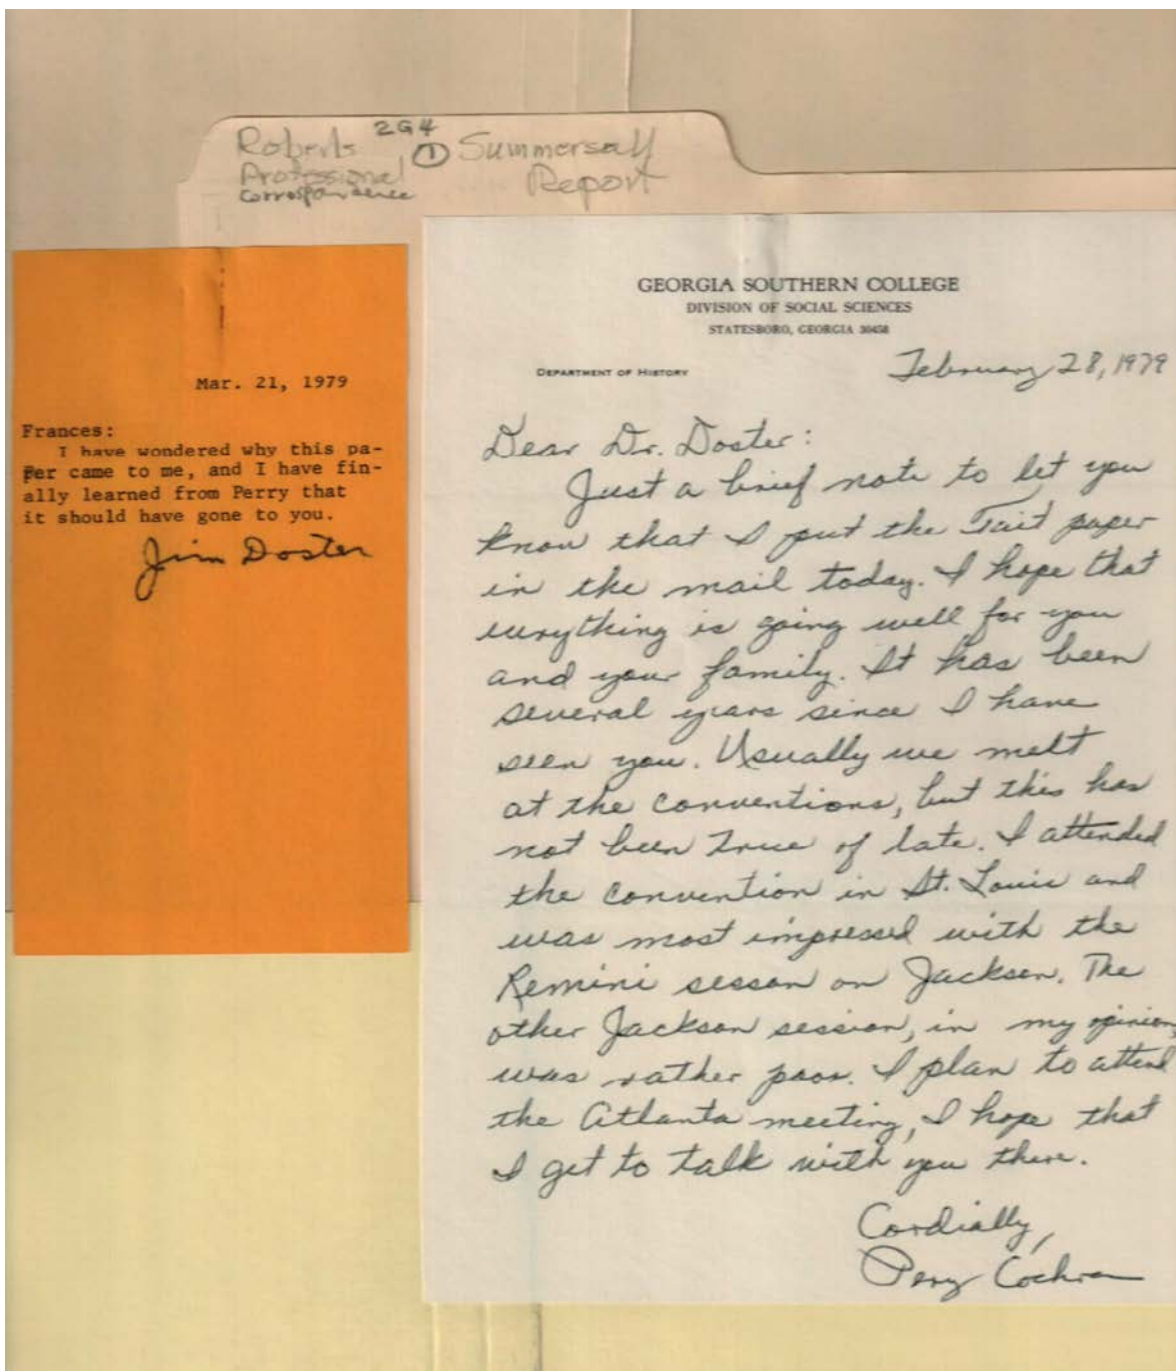 2G4
Roberts ① Summersall
Professional Report
Correspondence
Mar. 21, 1979
Frances:
I have wondered why this pa-
per came to me, and I have fin-
ally learned from Perry that
it should have gone to you.
Jim Doster
GEORGIA SOUTHERN COLLEGE
DIVISION OF SOCIAL SCIENCES
STATESBORO, GEORGIA 30458
DEPARTMENT OF HISTORY
February 28, 1979
Dear Dr. Doster:
Just a brief note to let you
know that I put the Tait paper
in the mail today. I hope that
everything is going well for you
and your family. It has been
several years since I have
seen you. Usually we melt
at the conventions, but this has
not been true of late. I attended
the convention in St. Louis and
was most impressed with the
Remini sesson on Jackson. The
other Jackson session, in my opinion,
was rather poor. I plan to attend
the Atlanta meeting, I hope that
I get to talk with you there.
Cordially,
Pery Cochran